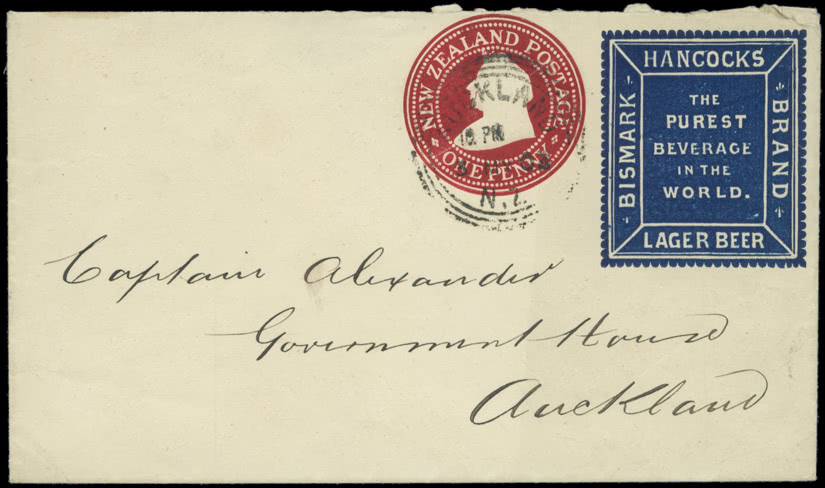 NEW ZEALAND POSTAGE
ONE PENNY
AUCKLAND
N.Z
HANCOCKS
BISMARK
BRAND
THE
PUREST
BEVERAGE
IN THE
WORLD.
LAGER BEER
Captain Alexander
Government House
Auckland